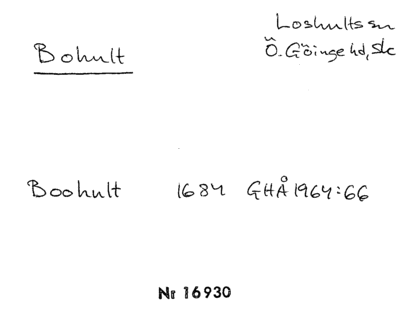 Bohult
Loshults sn
Ö. Göinge hd, Sk
Boohult 1684 GHÅ 1964:66
Nr 16930